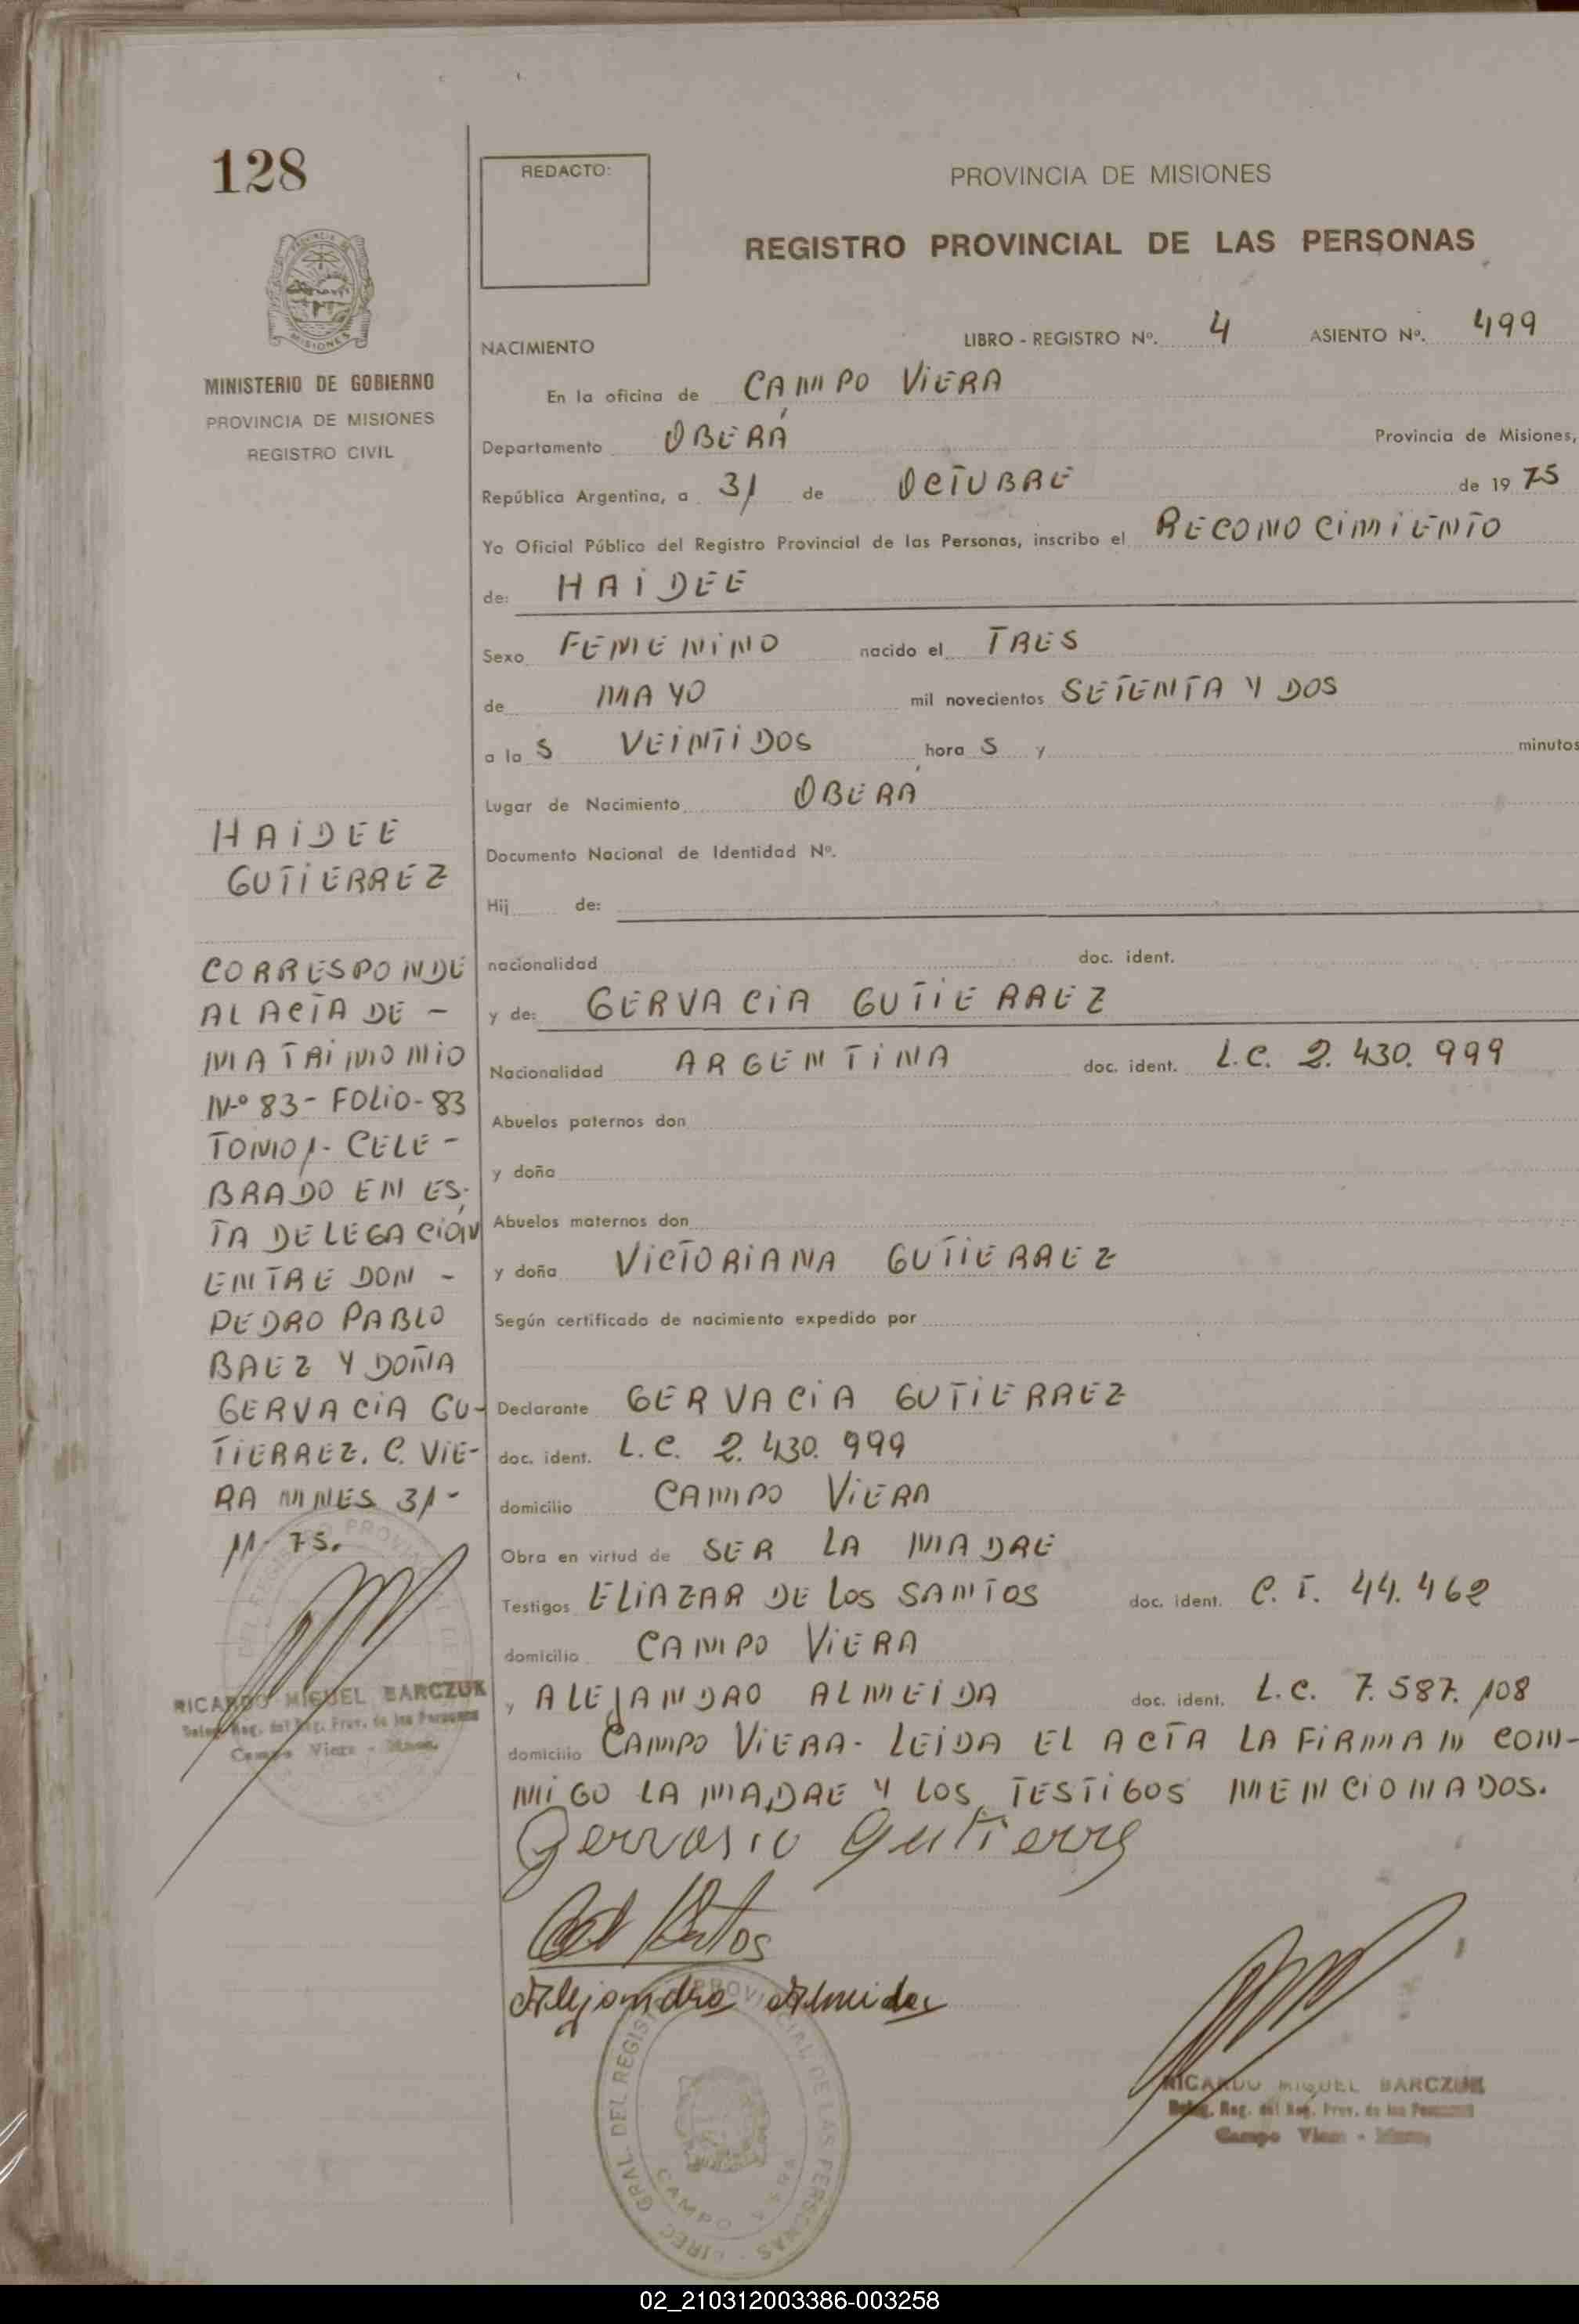 128
PROVINCIA DE MISIONES
MINISTERIO DE GOBIERNO
PROVINCIA DE MISIONES
REGISTRO CIVIL
HAIDEE
GUTIERREZ
CORRESPONDE
AL ACTA DE -
MATRIMONIO
Nº 83 - FOLIO - 83
TOMO 1 - CELE -
BRADO EN ES-
TA DELEGACIÓN
ENTRE DON -
PEDRO PABLO
BAEZ Y DOÑA
GERVACIA GU-
TIERREZ. C. VIE-
RA MNES 31 -
11 - 75.
RICARDO MIGUEL BARCZUK
Deleg. Reg. del Reg. Prov. de las Personas
Campo Viera - Mnes.
REDACTO:
PROVINCIA DE MISIONES
REGISTRO PROVINCIAL DE LAS PERSONAS
NACIMIENTO LIBRO - REGISTRO Nº. 4 ASIENTO Nº. 499
En la oficina de CAMPO VIERA
Departamento OBERÁ Provincia de Misiones,
República Argentina, a 31 de OCTUBRE de 19 75
Yo Oficial Público del Registro Provincial de las Personas, inscribo el RECONOCIMIENTO
de: HAIDEE
Sexo FEMENINO nacido el TRES
de MAYO mil novecientos SETENTA Y DOS
a la S VEINTIDOS hora S y minutos
Lugar de Nacimiento OBERÁ
Documento Nacional de Identidad Nº.
Hij de:
nacionalidad doc. ident.
y de: GERVACIA GUTIERREZ
Nacionalidad ARGENTINA doc. ident. L.C. 2.430.999
Abuelos paternos don
y doña
Abuelos maternos don
y doña VICTORIANA GUTIERREZ
Según certificado de nacimiento expedido por
Declarante GERVACIA GUTIERREZ
doc. ident. L.C. 2.430.999
domicilio CAMPO VIERA
Obra en virtud de SER LA MADRE
Testigos ELIAZAR DE LOS SANTOS doc. ident. C.I. 44.462
domicilio CAMPO VIERA
y ALEJANDRO ALMEIDA doc. ident. L.C. 7.587.108
domicilio CAMPO VIERA - LEIDA EL ACTA LA FIRMAN CON-
MIGO LA MADRE Y LOS TESTIGOS MENCIONADOS.
Gervasio Gutierre
Alejandro Almeida
DIREC. GRAL. DEL REGISTRO PROVINCIAL DE LAS PERSONAS
CAMPO VIERA
RICARDO MIGUEL BARCZUK
Deleg. Reg. del Reg. Prov. de las Personas
Campo Viera - Mnes.
02_210312003386-003258